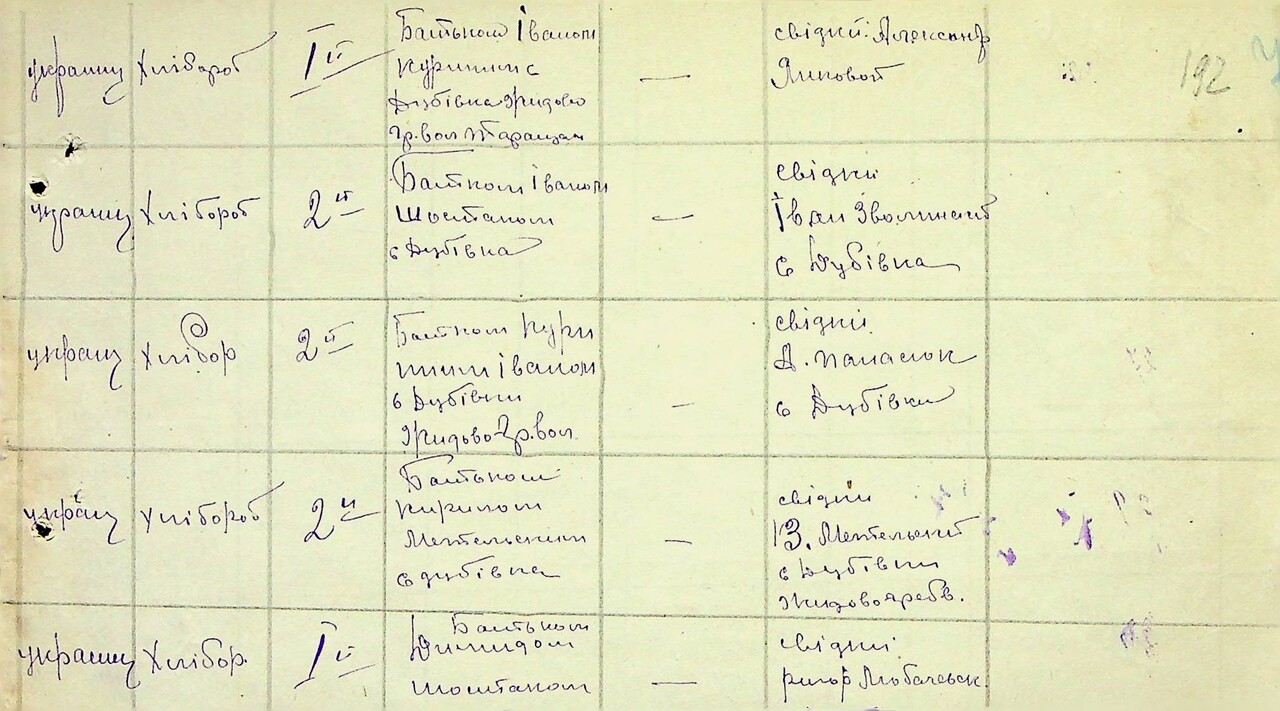 українц Хлібороб Iй Батьком Іваном
Куришим с
Дубівка Жидово
гр. вол Таращан
—
свідки: Александр
Яниовой
192
українц Хлібороб 2й Батком Іваном
Шостаком
с Дубівка
—
свідки
Іван Зволинский
с Дубівка
українц Хлібор 2й Батком Кури
шим Іваном
с Дубівки
Жидово Гр. вол.
—
свідки
А. Панасюк
с Дубівки
українц Хлібороб 2й Батьком
Кирилом
Метельским
с Дубівка
—
свідки
В. Метельский
с Дубівки
Жидовогребв.
українц Хлібор. Iй Батьком
Димидом
Шостаком
—
свідки